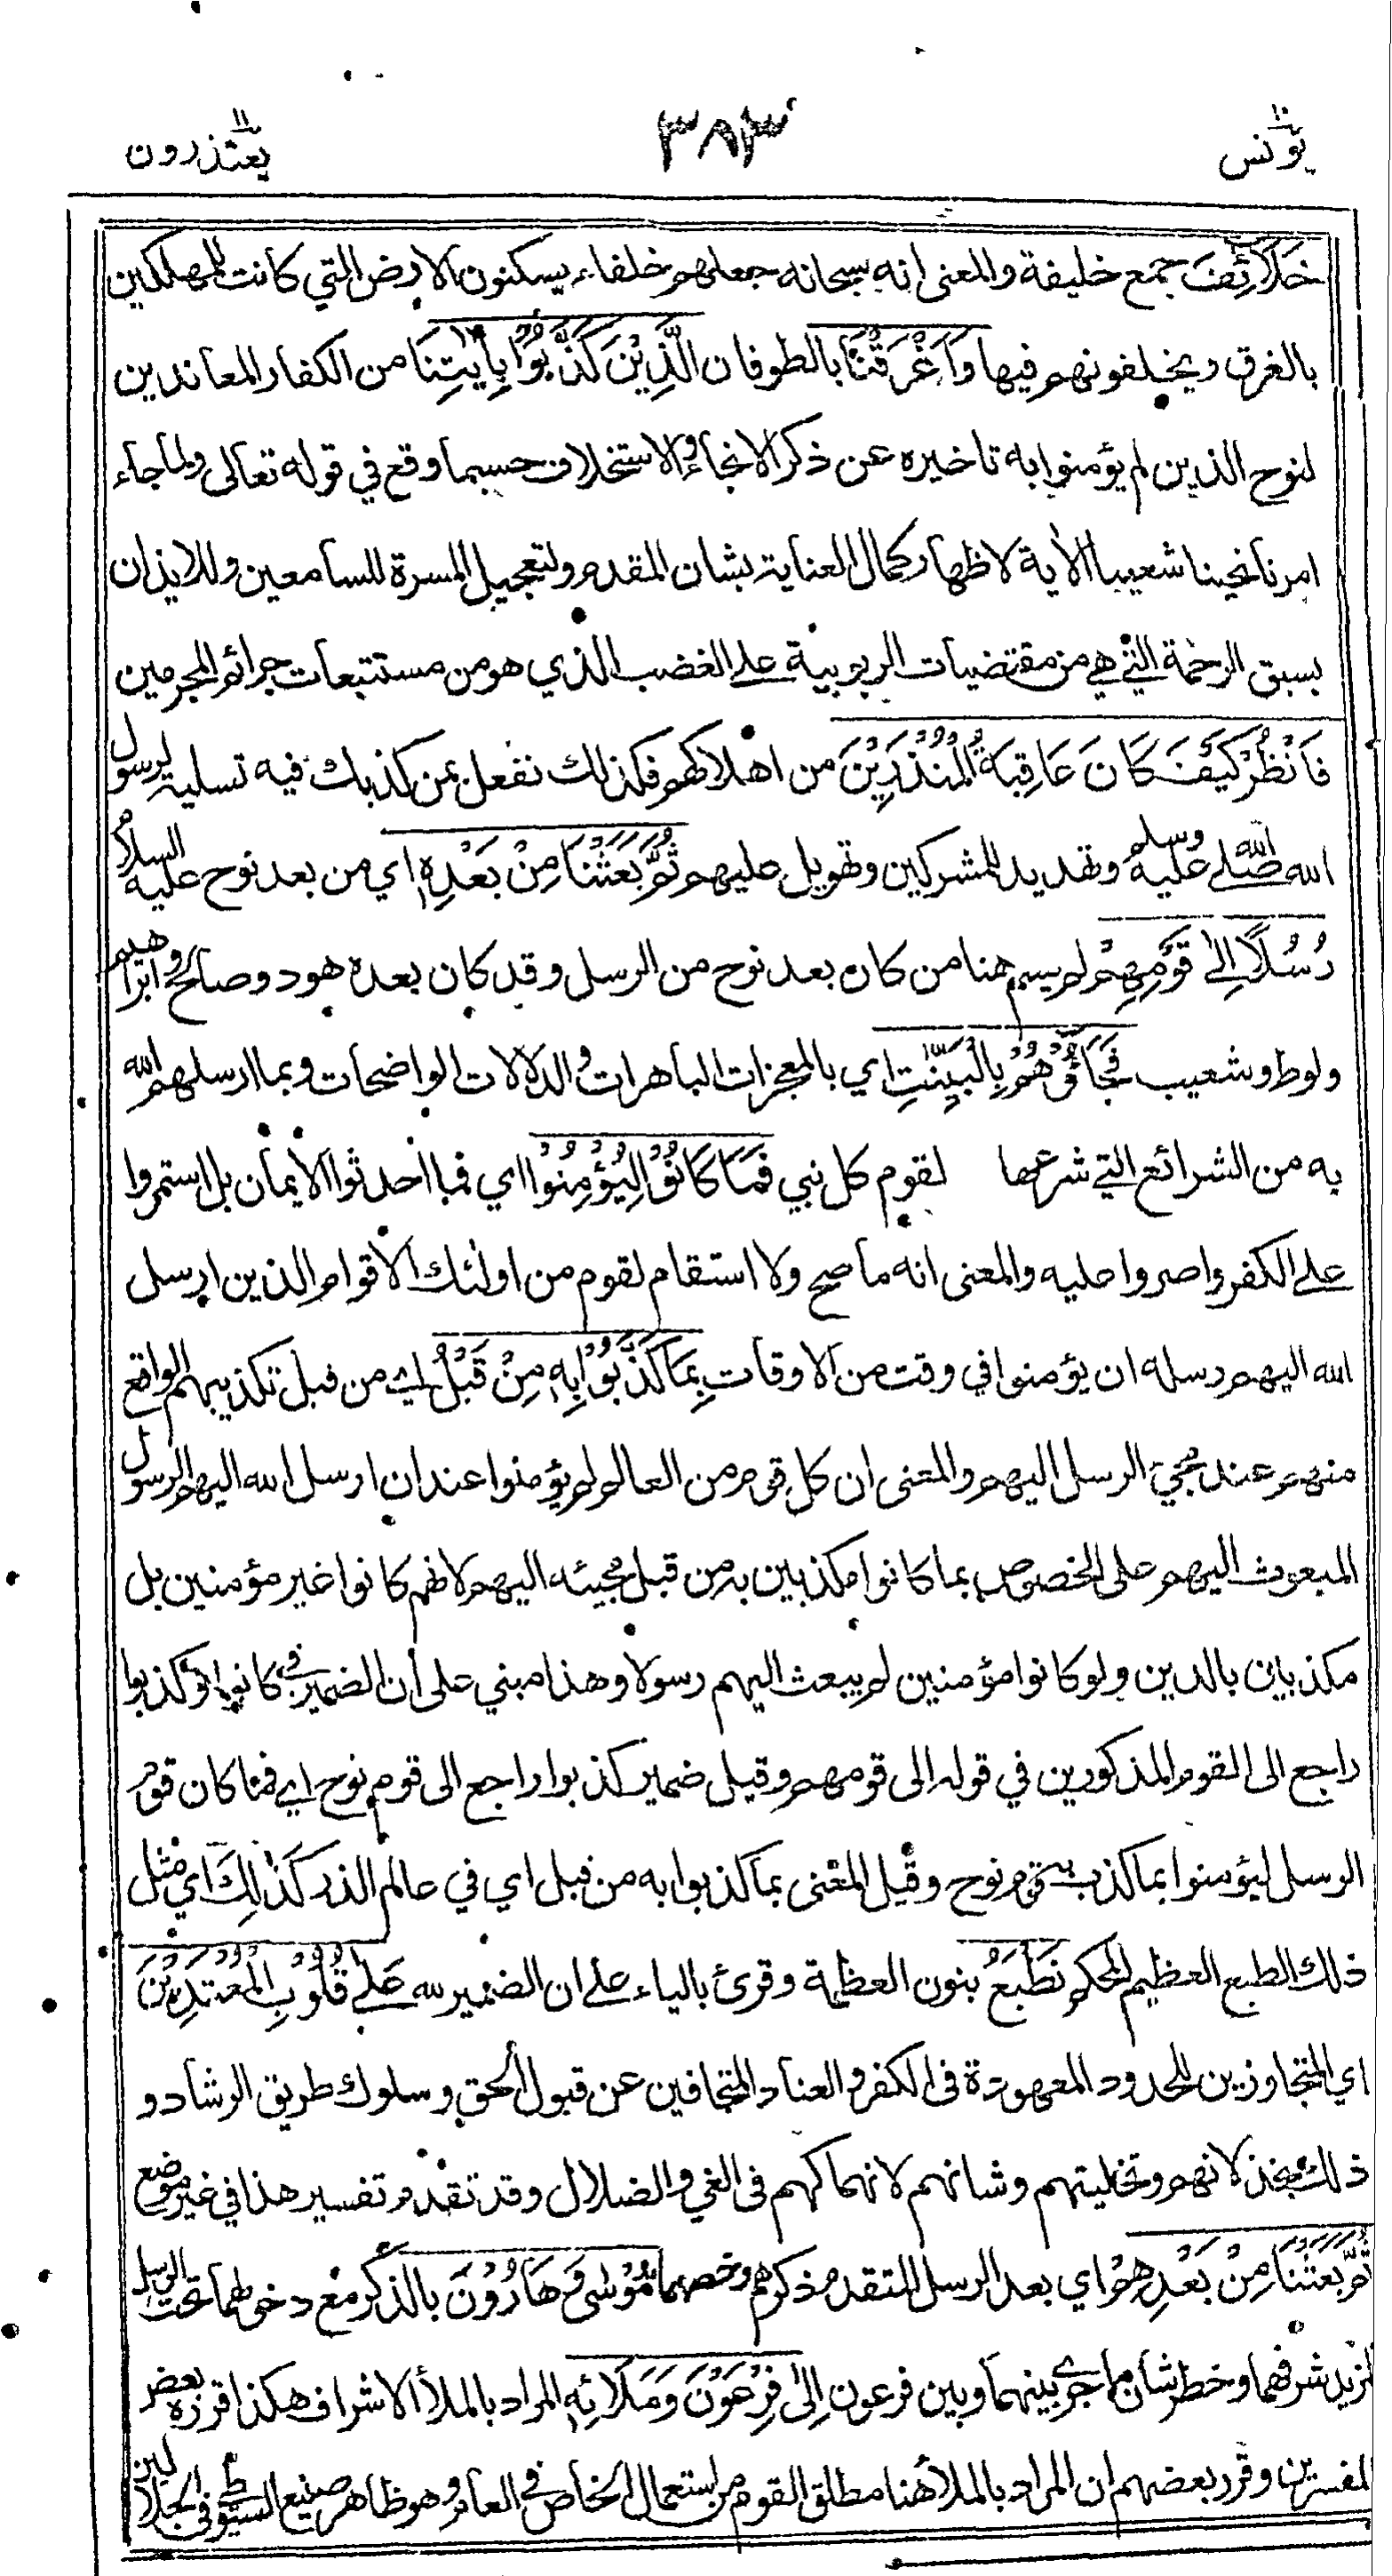 يونس ١٠
٣٨٣
يعتذرون ١١
خَلَائِفَ جمع خليفة والمعنى انه سبحانه جعلهم خلفاء يسكنون الارض التي كانت للمهلكين
بالغرق ويخلفونهم فيها وَاَغْرَقْنَا بالطوفان الَّذِيْنَ كَذَّبُوْا بِاٰيٰتِنَا من الكفار المعاندين
لنوح الذين لم يؤمنوا به تاخيره عن ذكر الانجاء والاستخلاف حسبما وقع في قوله تعالى ولما جاء
امرنا نجينا شعيبا الأية لاظهار كمال العناية بشان المقدم ولتعجيل المسرة للسامعين وللايذان
بسبق الرحمة التي هي من مقتضيات الربوبية على الغضب الذي هو من مستتبعات جرائم المجرمين
فَانْظُرْ كَيْفَ كَانَ عَاقِبَةُ الْمُنْذَرِيْنَ من اهلاكهم فكذلك نفعل بمن كذبك فيه تسلية لرسول
الله صلى الله عليه وسلم وتهديد للمشركين وتهويل عليهم ثُمَّ بَعَثْنَا مِنْ بَعْدِهٖ اي من بعد نوح عليه السلام
رُسُلًا اِلٰى قَوْمِهِمْ لم يسم هنا من كان بعد نوح من الرسل وقد كان بعده هود وصالح وابراهيم
ولوط وشعيب فَجَاؤُهُمْ بِالْبَيِّنٰتِ اي بالمعجزات الباهرات والدلالات الواضحات وبما ارسلهم الله
به من الشرائع التي شرعها لقوم كل نبي فَمَا كَانُوْا لِيُؤْمِنُوْا اي فما احدثوا الايمان بل استمروا
على الكفر واصروا عليه والمعنى انه ما صح ولا استقام لقوم من اولئك الاقوام الذين ارسل
الله اليهم رسله ان يؤمنوا في وقت من الاوقات بِمَا كَذَّبُوْا بِهٖ مِنْ قَبْلُ اي من قبل تكذيبهم الواقع
منهم عند مجيئ الرسل اليهم والمعنى ان كل قوم من العالم لم يؤمنوا عند ان ارسل الله اليهم الرسول
المبعوث اليهم على الخصوص بما كانوا مكذبين به من قبل مجيئه اليهم لانهم كانوا غير مؤمنين بل
مكذبين بالدين ولو كانوا مؤمنين لم يبعث اليهم رسولا وهذا مبني على أن الضمير في كانوا وكذبوا
راجع الى القوم المذكورين في قوله الى قومهم وقيل ضمير كذبوا راجع الى قوم نوح اي فما كان قوم
الرسل ليؤمنوا بما كذب به قوم نوح وقيل المعنى بما كذبوا به من قبل اي في عالم الذر كَذٰلِكَ اي مثل
ذلك الطبع العظيم المحكم نَطْبَعُ بنون العظمة وقرئ بالياء على ان الضمير لله عَلٰى قُلُوْبِ الْمُعْتَدِيْنَ
اي المتجاوزين للحدود المعهودة في الكفر والعناد المتجافين عن قبول الحق وسلوك طريق الرشاد و
ذلك بخذلانهم وتخليتهم وشانهم لانهماكهم في الغي والضلال وقد تقدم تفسير هذا في غير موضع
ثُمَّ بَعَثْنَا مِنْ بَعْدِهِمْ اي بعد الرسل المتقدم ذكرهم وخصهما مُوْسٰى وَهَارُوْنَ بالذكر مع دخولهما تحت الرسل
لمزيد شرفهما وخطر شان ما جرى بينهما وبين فرعون اِلٰى فِرْعَوْنَ وَمَلَائِهٖ المراد بالملأ الاشراف هكذا قرره بعض
المفسرين وقرر بعضهم ان المراد بالملأ هنا مطلق القوم من استعمال الخاص في العام وهو ظاهر صنيع السيوطي في الجلالين